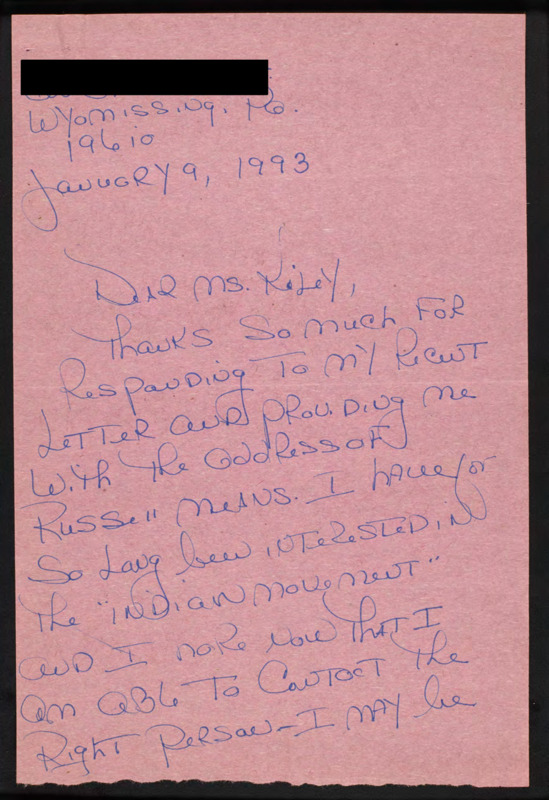 Wyomissing, Pa.
19610
January 9, 1993
Dear Ms. Kiley,
Thanks so much for
responding to my recent
letter and providing me
with the address of
Russell Means. I have for
so long been interested in
the "Indian movement"
and I hope now that I
am able to contact the
right person - I may be